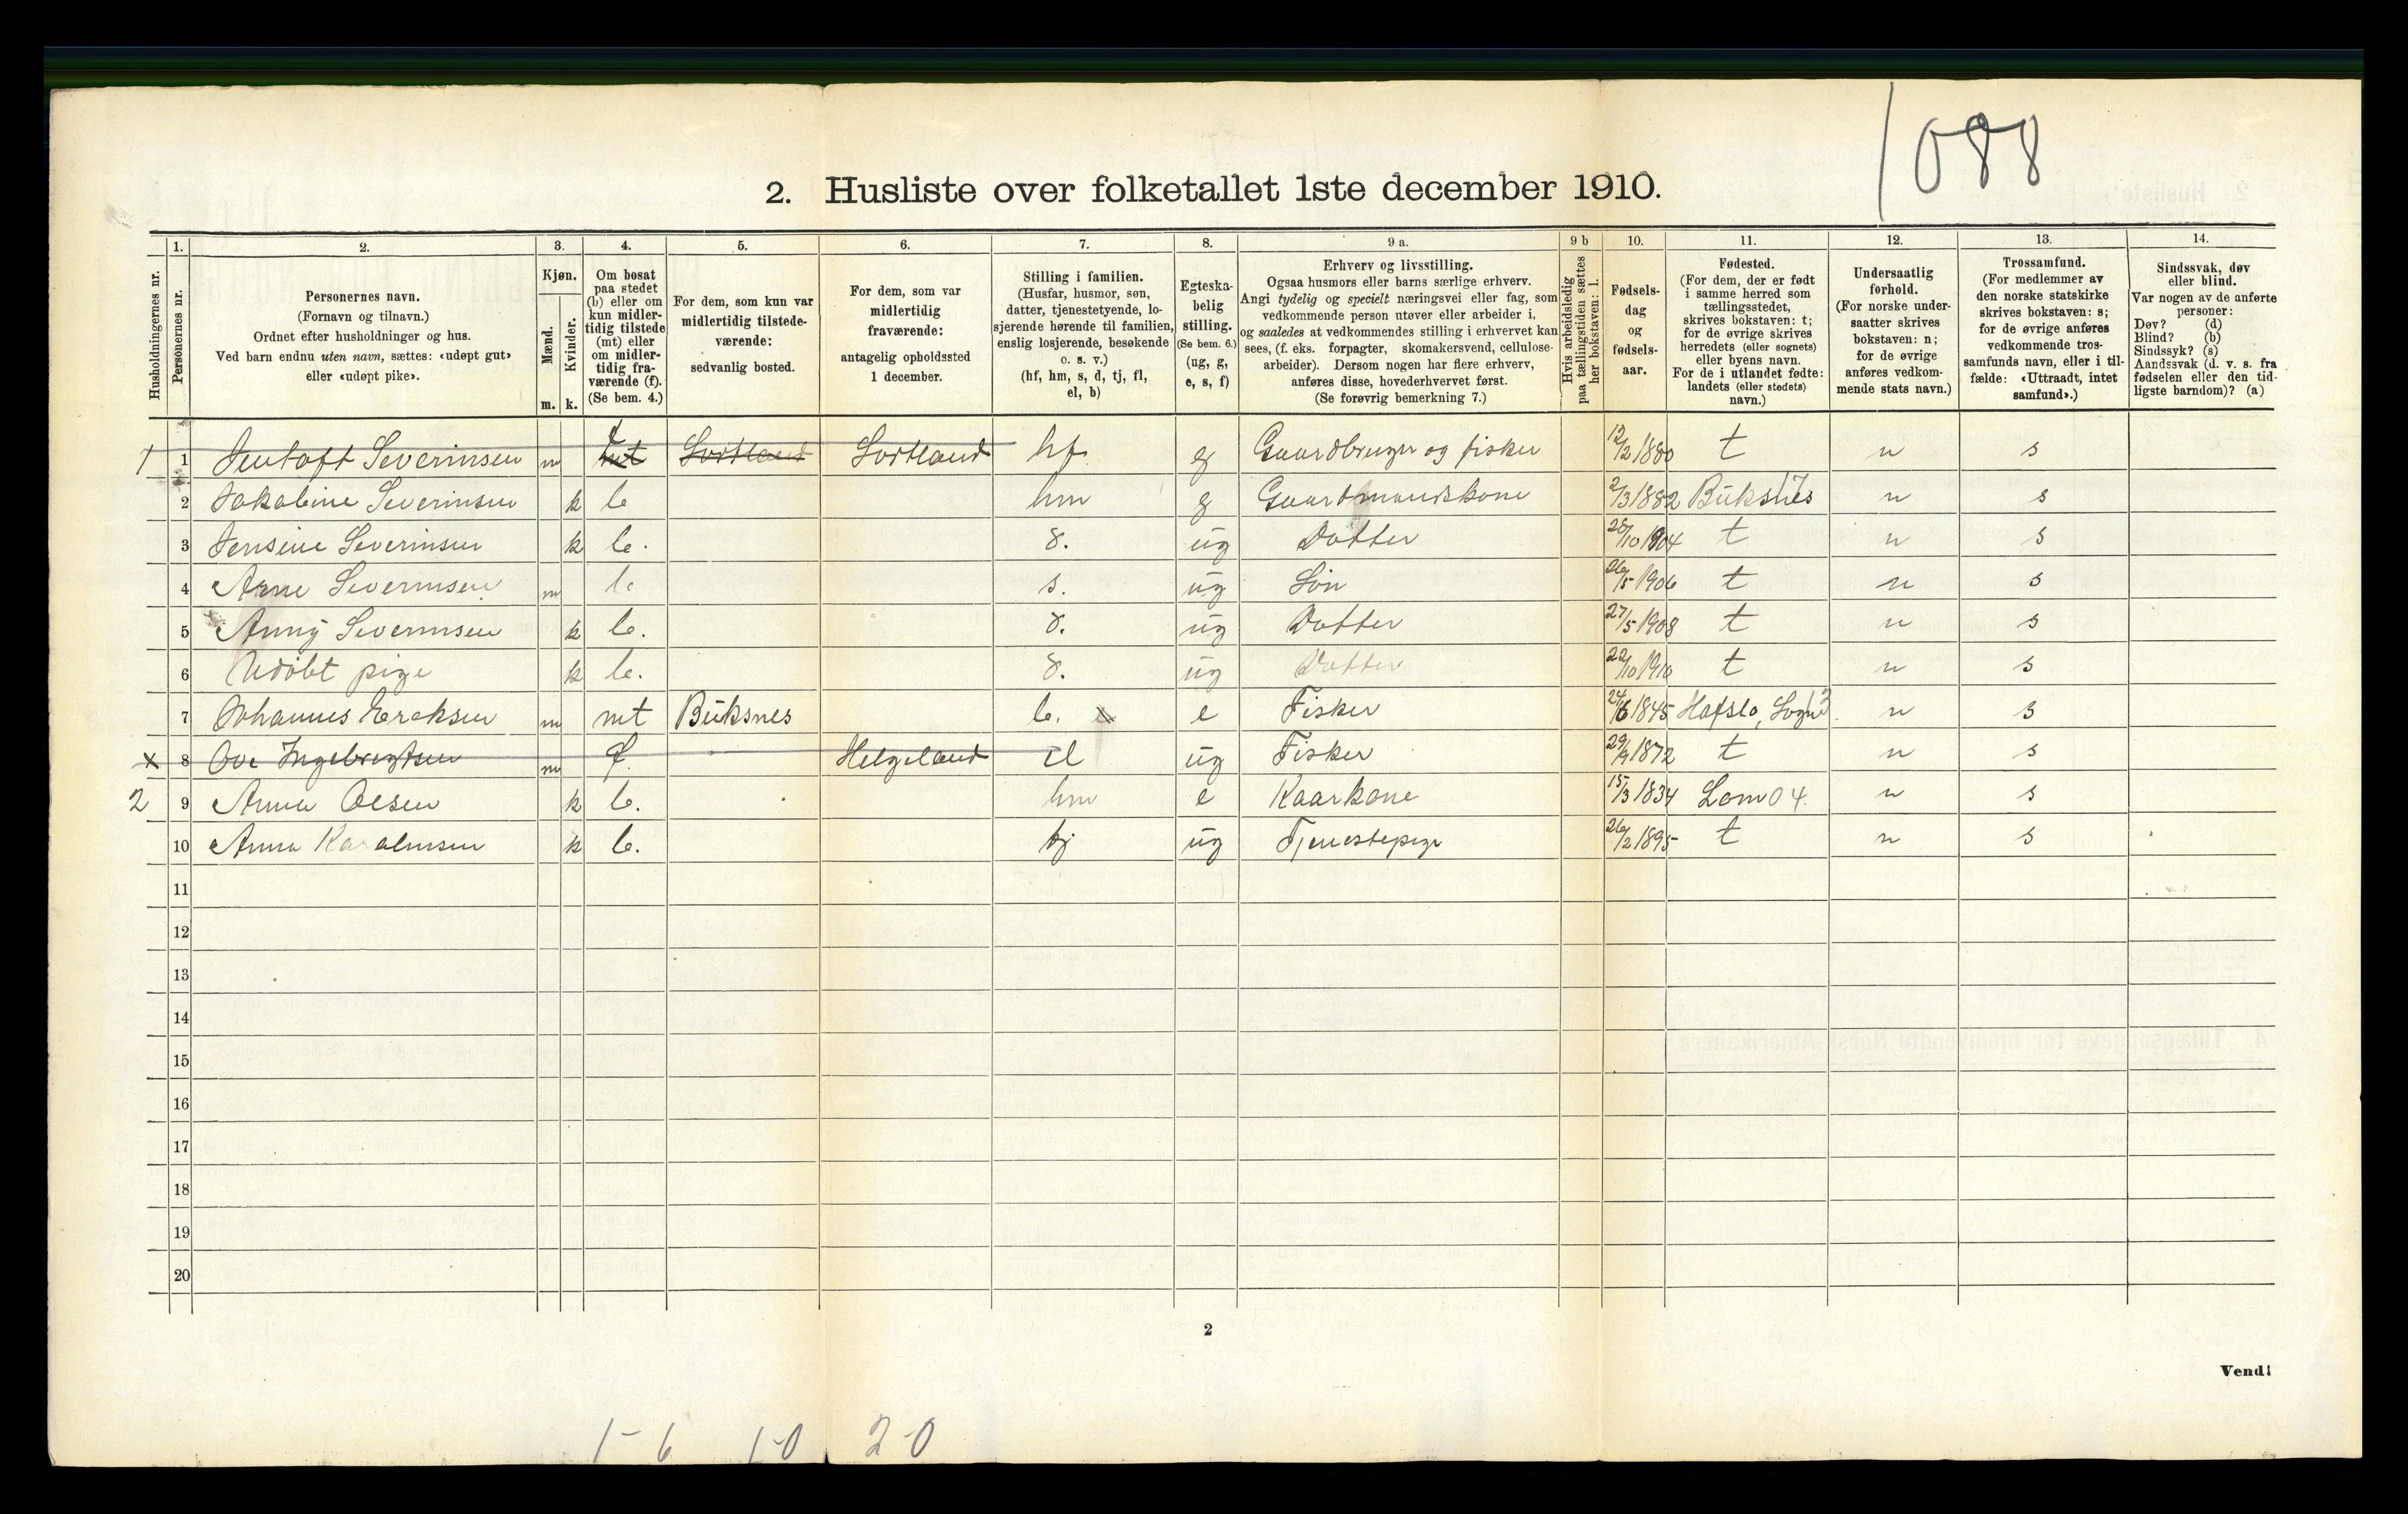 1088
2. Husliste over folketallet 1ste december 1910.
1. 2. 3. 4. 5. 6. 7. 8. 9 a. 9 b 10. 11. 12. 13. 14.
Husholdningernes nr.
Personernes nr.
Personernes navn.
(Fornavn og tilnavn.)
Ordnet efter husholdninger og hus.
Ved barn endnu uten navn, sættes: «udøpt gut»
eller «udøpt pike».
Kjøn.
Mænd.
Kvinder.
m. k.
Om bosat
paa stedet
(b) eller om
kun midler-
tidig tilstede
(mt) eller
om midler-
tidig fra-
værende (f).
(Se bem. 4.)
For dem, som kun var
midlertidig tilstede-
værende:
sedvanlig bosted.
For dem, som var
midlertidig
fraværende:
antagelig opholdssted
1 december.
Stilling i familien.
(Husfar, husmor, søn,
datter, tjenestetyende, lo-
sjerende hørende til familien,
enslig losjerende, besøkende
o. s. v.)
(hf, hm, s, d, tj, fl,
el, b)
Egteska-
belig
stilling.
(Se bem. 6.)
(ug, g,
e, s, f)
Erhverv og livsstilling.
Ogsaa husmors eller barns særlige erhverv.
Angi tydelig og specielt næringsvei eller fag, som
vedkommende person utøver eller arbeider i,
og saaledes at vedkommendes stilling i erhvervet kan
sees, (f. eks. forpagter, skomakersvend, cellulose-
arbeider). Dersom nogen har flere erhverv,
anføres disse, hovederhvervet først.
(Se forøvrig bemerkning 7.)
Hvis arbeidsledig
paa tællingstiden sættes
her bokstaven: l.
Fødsels-
dag
og
fødsels-
aar.
Fødested.
(For dem, der er født
i samme herred som
tællingsstedet,
skrives bokstaven: t;
for de øvrige skrives
herredets (eller sognets)
eller byens navn.
For de i utlandet fødte:
landets (eller stedets)
navn.)
Undersaatlig
forhold.
(For norske under-
saatter skrives
bokstaven: n;
for de øvrige
anføres vedkom-
mende stats navn.)
Trossamfund.
(For medlemmer av
den norske statskirke
skrives bokstaven: s;
for de øvrige anføres
vedkommende tros-
samfunds navn, eller i til-
fælde: «Uttraadt, intet
samfund».)
Sindssvak, døv
eller blind.
Var nogen av de anførte
personer:
Døv? (d)
Blind? (b)
Sindssyk? (s)
Aandssvak (d. v. s. fra
fødselen eller den tid-
ligste barndom)? (a)
1 1 Jentoft Severinsen m mt f Sortland Sortland hf g Gaardbruger og fisker 12/2 1880 t n s
2 Jakobine Severinsen k b hm g Gaardmandskone 2/3 1882 Buksnes n s
3 Jensine Severinsen k b. d. ug Datter 28/10 1904 t n s
4 Arne Severinsen m b s. ug Søn 26/5 1906 t n s
5 Anny Severinsen k b. d. ug Datter 27/5 1908 t n s
6 Udøbt pige k b. d. ug Datter 22/10 1910 t n s
7 Johannes Ereksen m mt Buksnes b. e Fisker 24/6 1845 Hafslo, Sogn n s
x 8 Ove Ingebregtsen m f. Helgeland el ug Fisker 29/9 1872 t n s
2 9 Anna Olsen k b. hm e Kaarkone 15/3 1834 Lom 04 n s
10 Anna Karalinsen k b. tj ug Tjenestepige 26/2 1895 t n s
11
12
13
14
15
16
17
18
19
20
2
Vend!
1-6 1-0 2-0